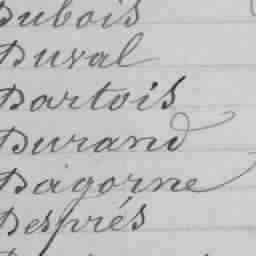 Dubois
Duval
Dartois
Durand
Dagorne
Després